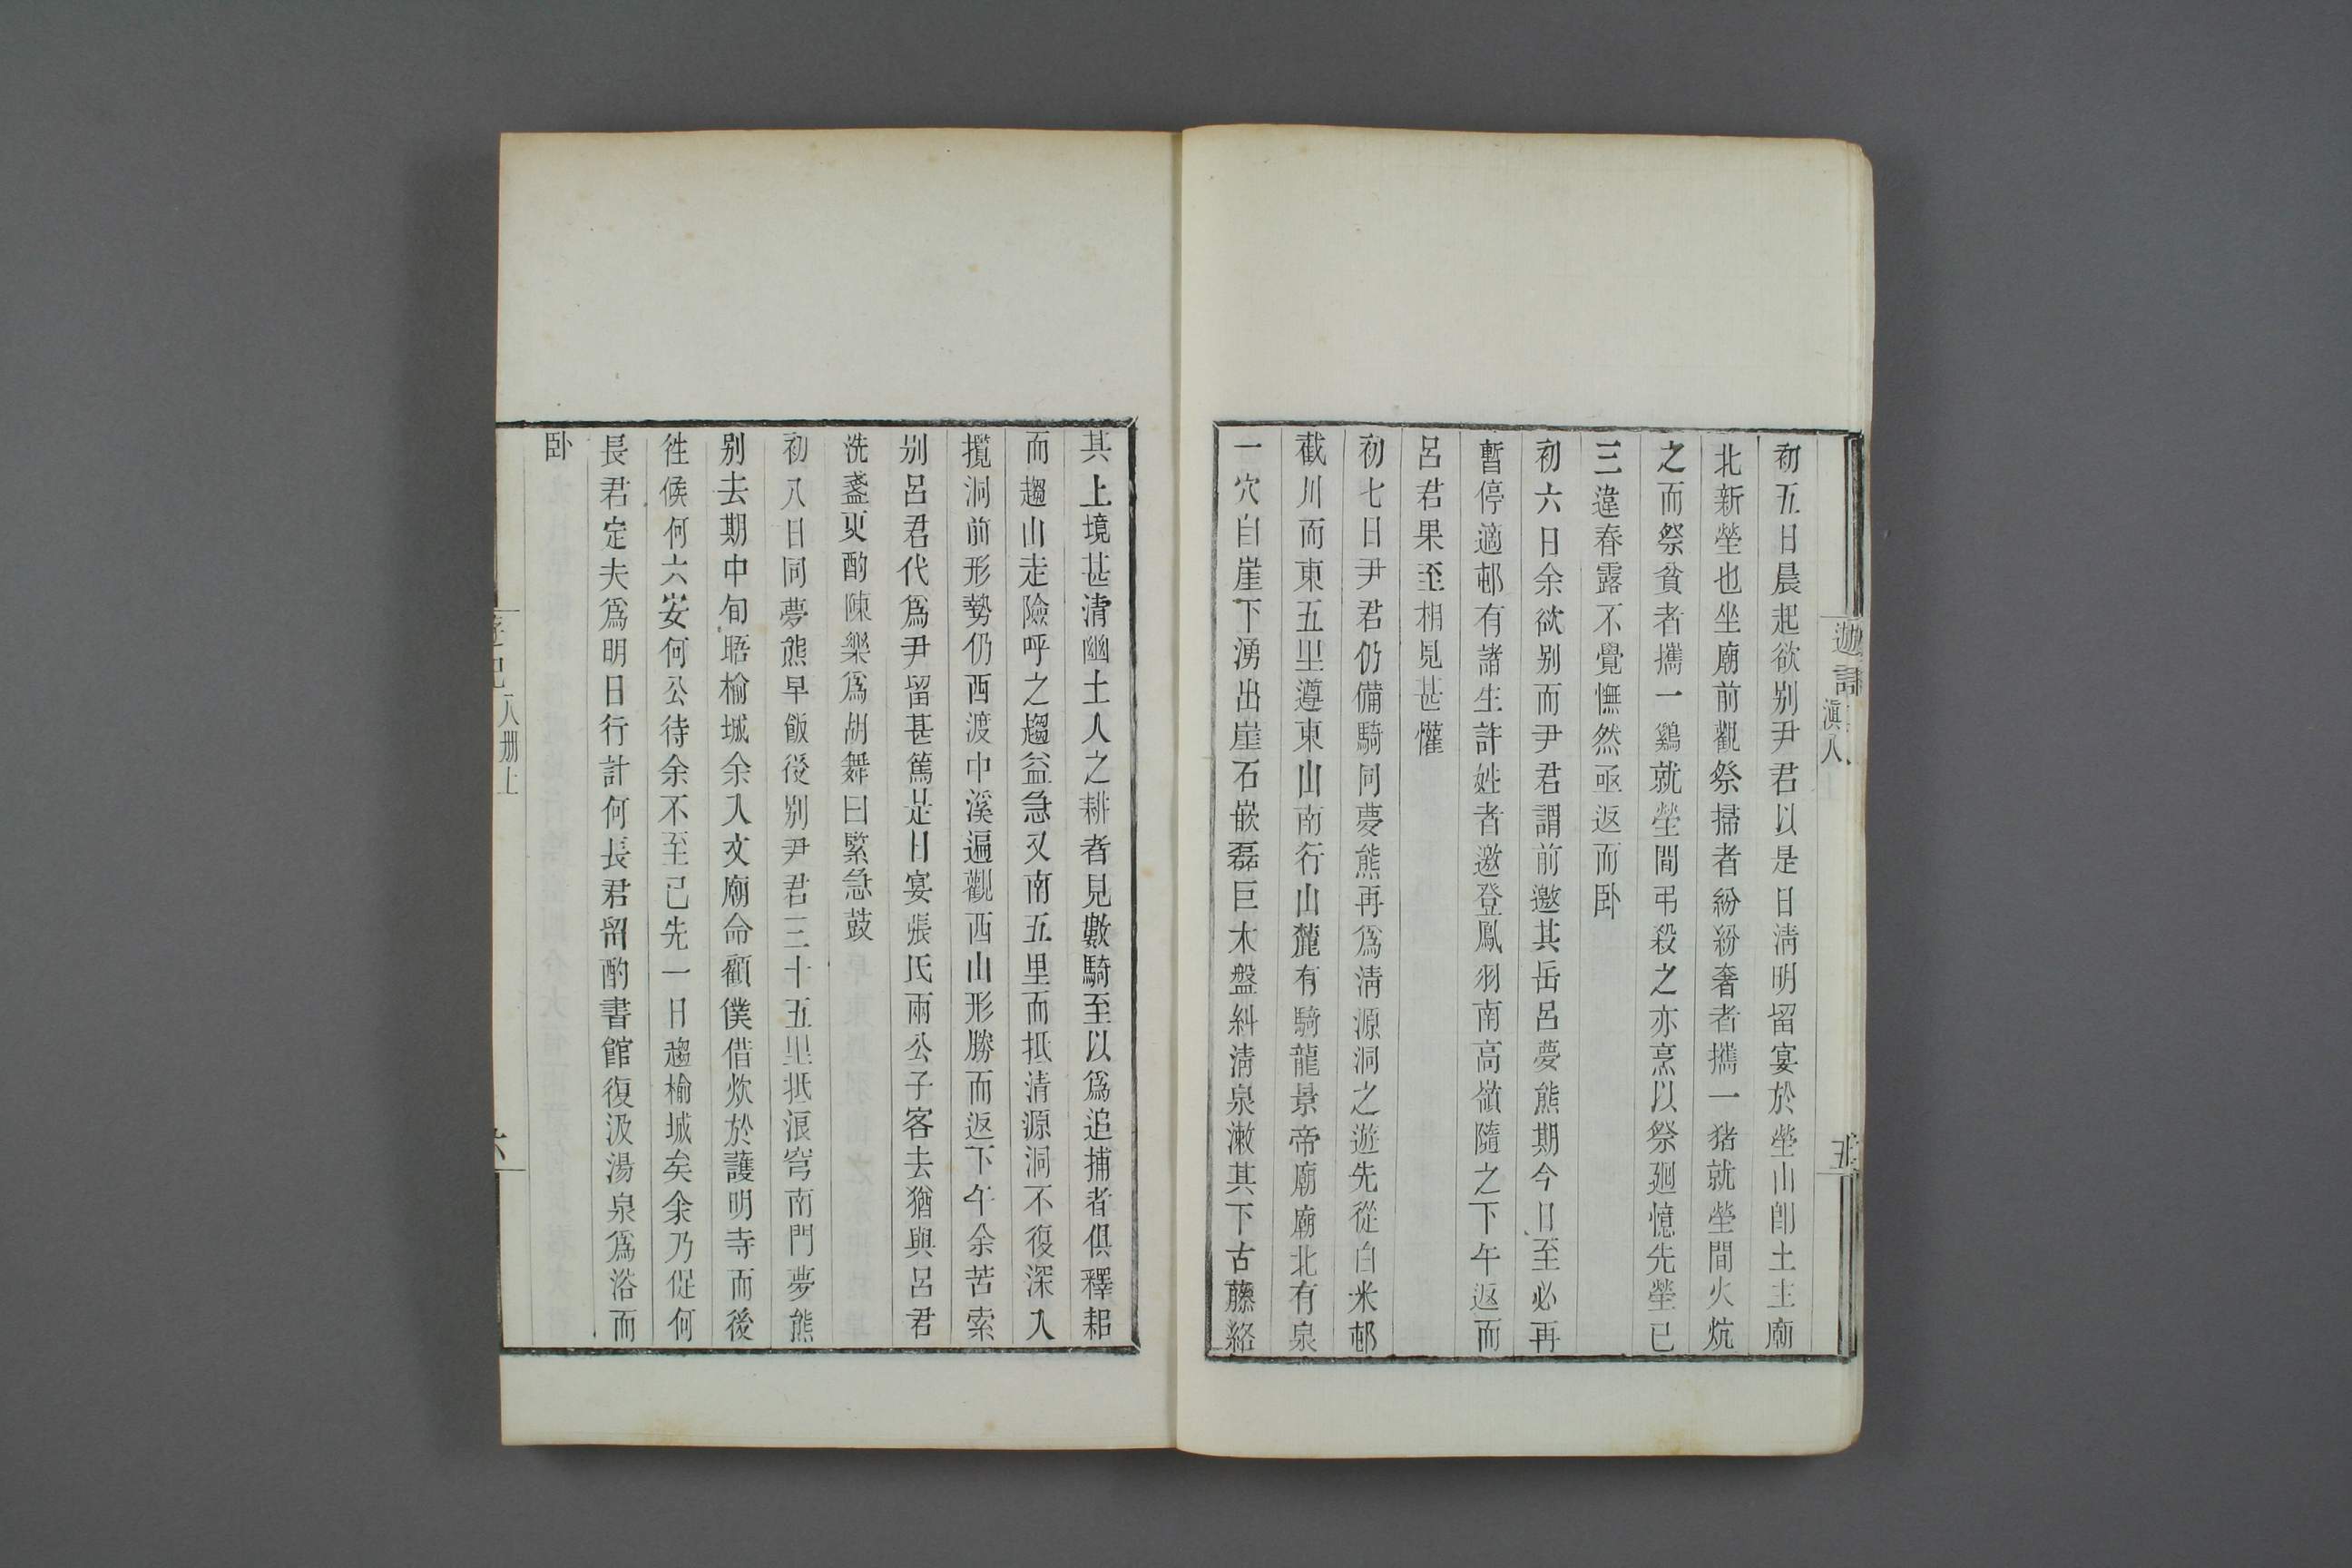 初五日晨起欲别尹君以是日淸明留宴於塋山卽土主廟
北新塋也坐廟前觀祭掃者紛紛奢者攜一猪就塋間火炕
之而祭貧者攜一鷄就塋間弔殺之亦烹以祭廻憶先塋已
三違春露不覺憮然亟返而卧
初六日余欲别而尹君謂前邀其岳呂夢熊期今日至必再
暫停適邨有諸生許姓者邀登鳳羽南高嶺隨之下午返而
呂君果至相見甚懽
初七日尹君仍備騎同夢熊再爲淸源洞之遊先從白米邨
截川而東五里遵東山南行山麓有騎龍景帝廟廟北有泉
一穴自崖下湧出崖石嵌磊巨木盤糾淸泉漱其下古藤絡
其上境甚清幽土人之耕者見數騎至以爲追捕者俱釋耜
而趨山走險呼之趨益急又南五里而抵清源洞不復深入
攬洞前形勢仍西渡中溪遍觀西山形勝而返下午余苦索
别呂君代爲尹留甚篤是日宴張氏兩公子客去猶與呂君
洗盞更酌陳樂爲胡舞曰緊急鼓
初八日同夢熊早飯後别尹君三十五里抵浪穹南門夢熊
别去期中旬晤榆城余入文廟命顧僕借炊於護明寺而後
徃候何六安何公待余不至已先一日趨榆城矣余乃促何
長君定夫爲明日行計何長君留酌書館復汲湯泉爲浴而
卧
滇八
五
八册上
六